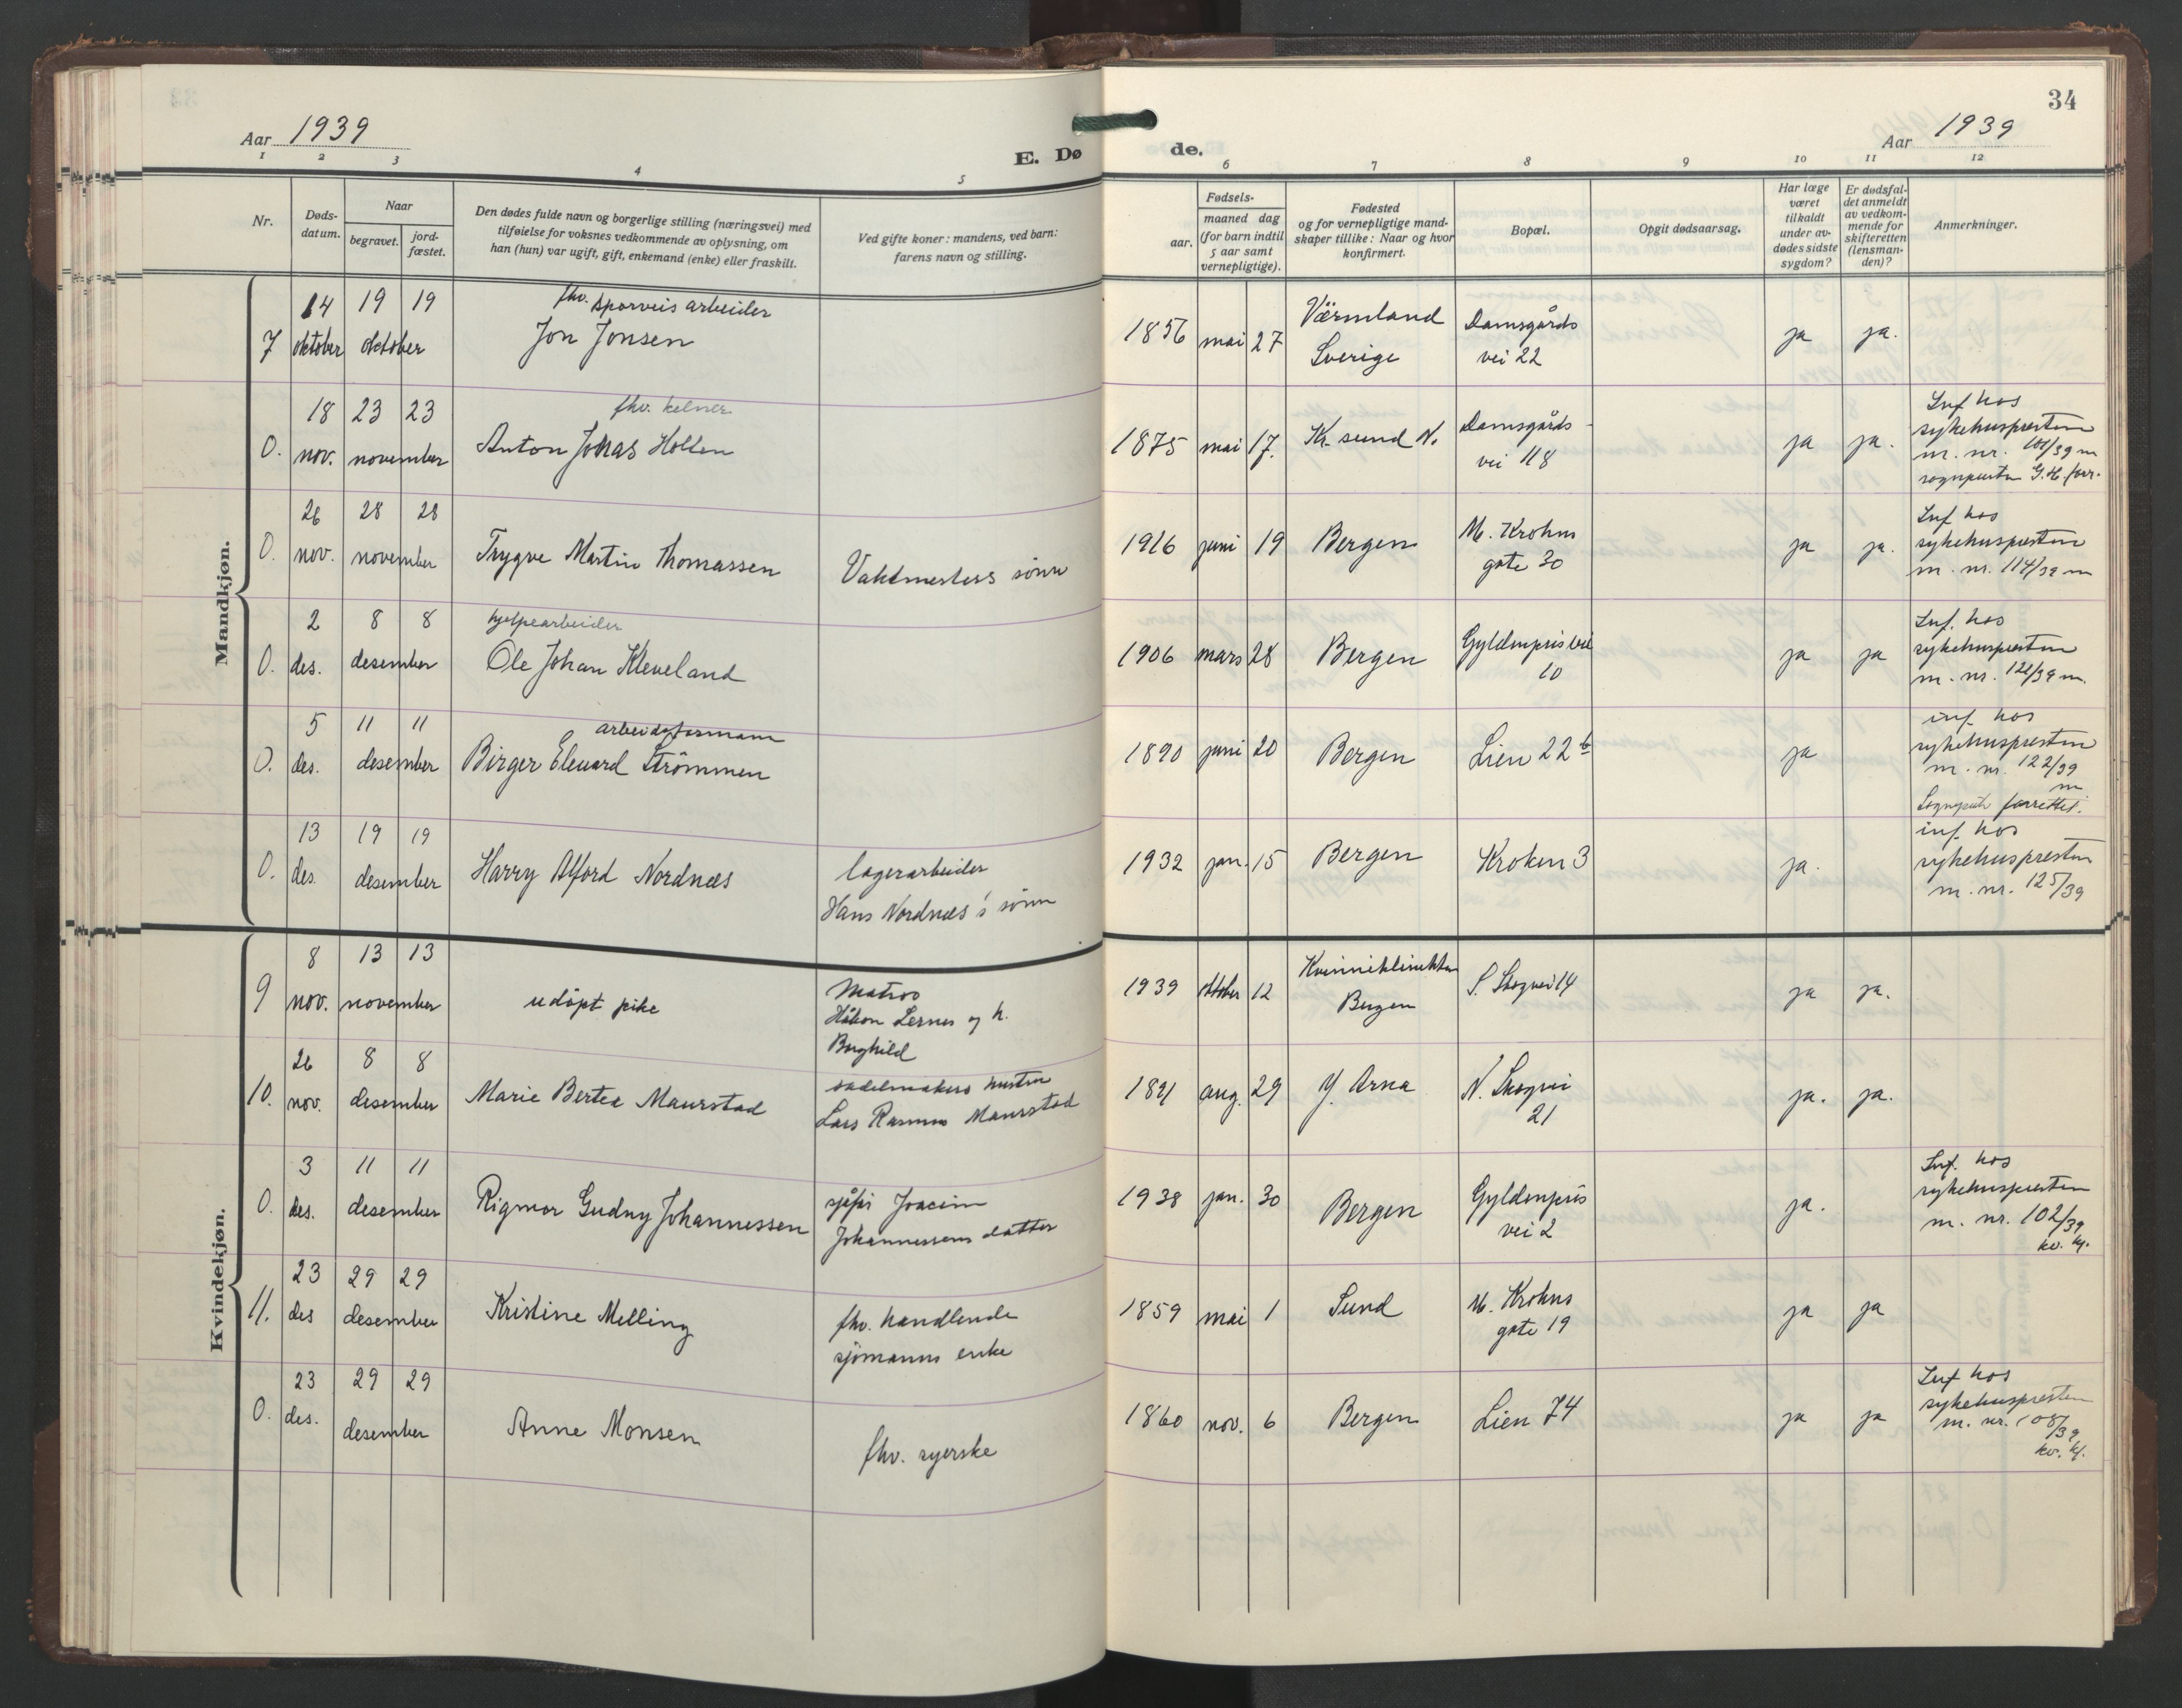 34
Aar 1939
E. Dø
de.
Aar 1939
1 2 3 4 5 6 7 8 9 10 11 12
Nr.
Døds-
datum.
Naar
begravet.
jord-
fæstet.
Den dødes fulde navn og borgerlige stilling (næringsvei) med
tilføielse for voksnes vedkommende av oplysning, om
han (hun) var ugift, gift, enkemand (enke) eller fraskilt.
Ved gifte koner: mandens, ved barn:
farens navn og stilling.
Fødsels-
aar.
maaned dag
(for barn indtil
5 aar samt
vernepligtige).
Fødested
og for vernepligtige mand-
skaper tillike: Naar og hvor
konfirmert.
Bopæl.
Opgit dødsaarsag.
Har læge
været
tilkaldt
under av-
dødes sidste
sygdom?
Er dødsfal-
det anmeldt
av vedkom-
mende for
skifteretten
(lensman-
den)?
Anmerkninger.
Mandkjøn.
7
14 19 19
oktober oktober
fhv. sporveis arbeider
Jon Jonsen
1856 mai 27
Värmland
Sverige
Damsgårds
vei 22
ja ja.
0.
18 23 23
nov. november
fhv. kelner
Anton Jonas Hollen
1875 mai 17.
Kr. sund N.
Damsgårds-
vei 118
ja ja.
Inf hos
sykehuspresten
m. nr. 101/39 m
sognepresten G.H. forr.
0.
26 28 28
nov. november
Trygve Martin Thomassen
Vaktmesters sønn
1916 juni 19
Bergen
M. Krohns
gate 30
ja ja.
Inf hos
sykehuspresten
m. nr. 114/39 m
0.
2 8 8
des. desember
hjelpearbeider
Ole Johan Kleveland
1906 mars 28
Bergen
Gyldenpris vei
10
ja ja
Inf. hos
sykehuspresten
m. nr. 121/39 m.
0.
5 11 11
des. desember
arbeidsformann
Birger Edward Strömmen
1890 juni 20
Bergen
Lien 22 b
ja
inf. hos
sykehuspresten
m. nr. 122/39
m.
Sognepr. forrettet.
0.
13 19 19
des. desember
Harry Alford Nordnes
lagerarbeider
Hans Nordnes's sönn
1932 jan. 15
Bergen
Kroken 3
ja.
inf. hos
sykehuspresten
m. nr. 125/39
Kvindekjøn.
9
8 13 13
nov. november
udöpt pike
Matros
Håkon Lernes og h.
Borghild
1939 oktober 12
Kvinneklinikken
Bergen
S. Skogvei 14
ja ja.
10.
26 8 8
nov. desember
Marie Bertea Maurstad
sadelmakers hustru
Lars Rasmus Maurstad
1891 aug. 29
Y. Arna
N. Skogvei
21
ja. ja.
0.
3 11 11
des. desember
Rigmor Gudny Johannessen
sjåfør Joacim
Johannessens datter
1938 jan. 30
Bergen
Gyldenpris
vei 2
ja.
Inf. hos
sykehuspresten
m. nr. 102/39
kv. kj.
11.
23 29 29
des desember
Kristine Melling
fhv. handlende
sjömanns enke
1859 mai 1
Sund
M. Krohns
gate 19
ja ja
0.
23 29 29
des. desember
Anne Monsen
fhv. syerske
1860 nov. 6
Bergen
Lien 74
ja ja
Inf hos
sykehuspresten
m. nr. 108/39
kv. kj.